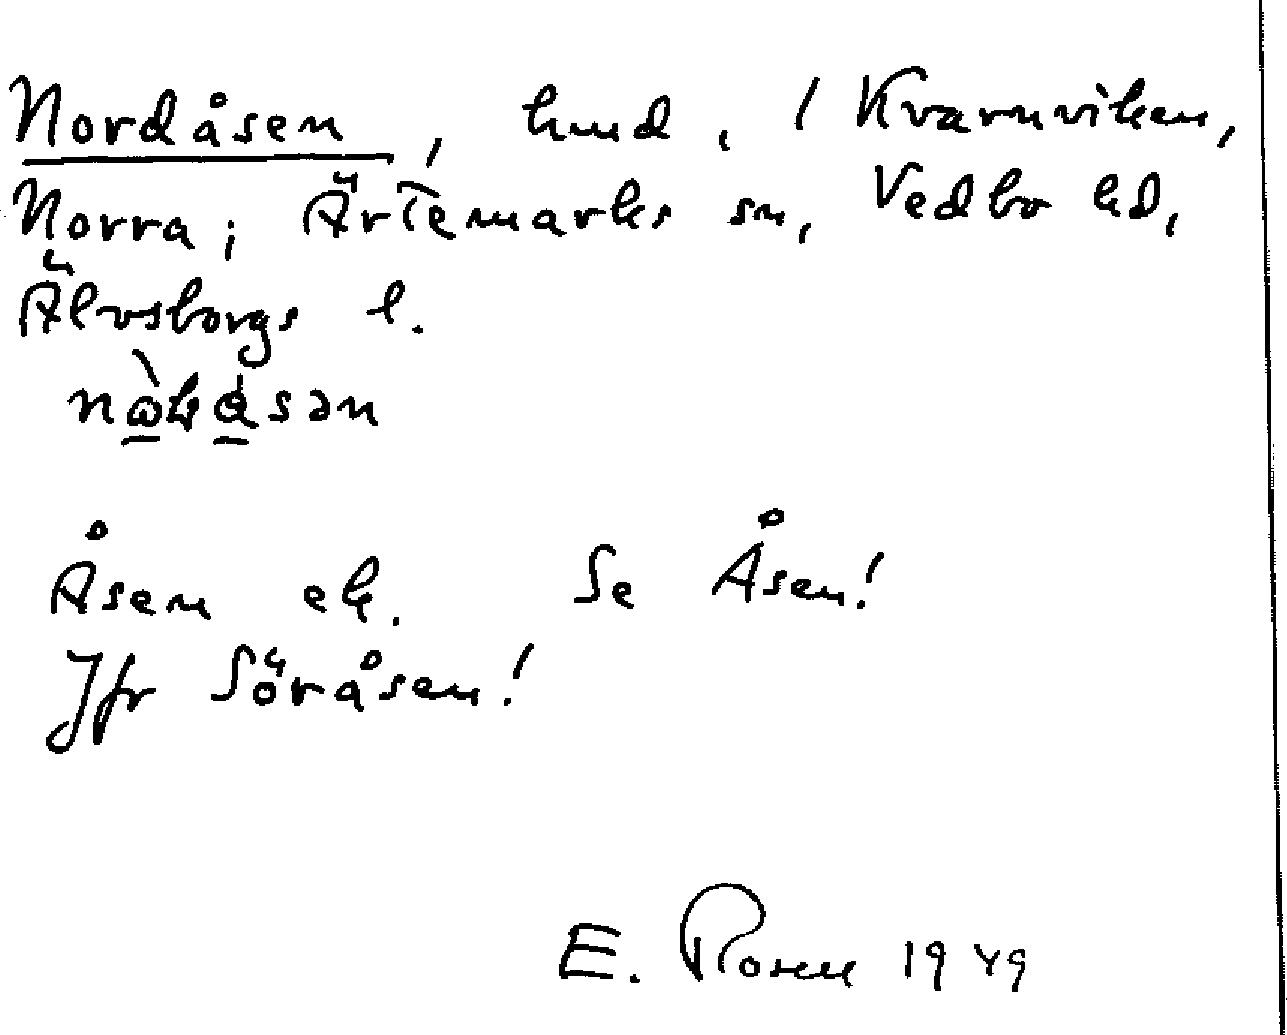 Nordåsen, hmd, / Kvarnviken,
Norra; Ärtemarks sn, Vedbo hd,
Älvsborgs l.
Åsen ek. Se Åsen!
Jfr Söråsen!
E. Rosén 1949